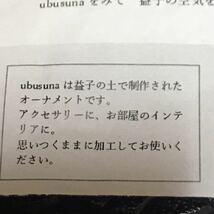 ubusuna をみて 益子の空気を
ubusuna は益子の土で制作された
オーナメントです。
アクセサリーに、お部屋のインテ
リアに。
思いつくままに加工してお使いく
ださい。